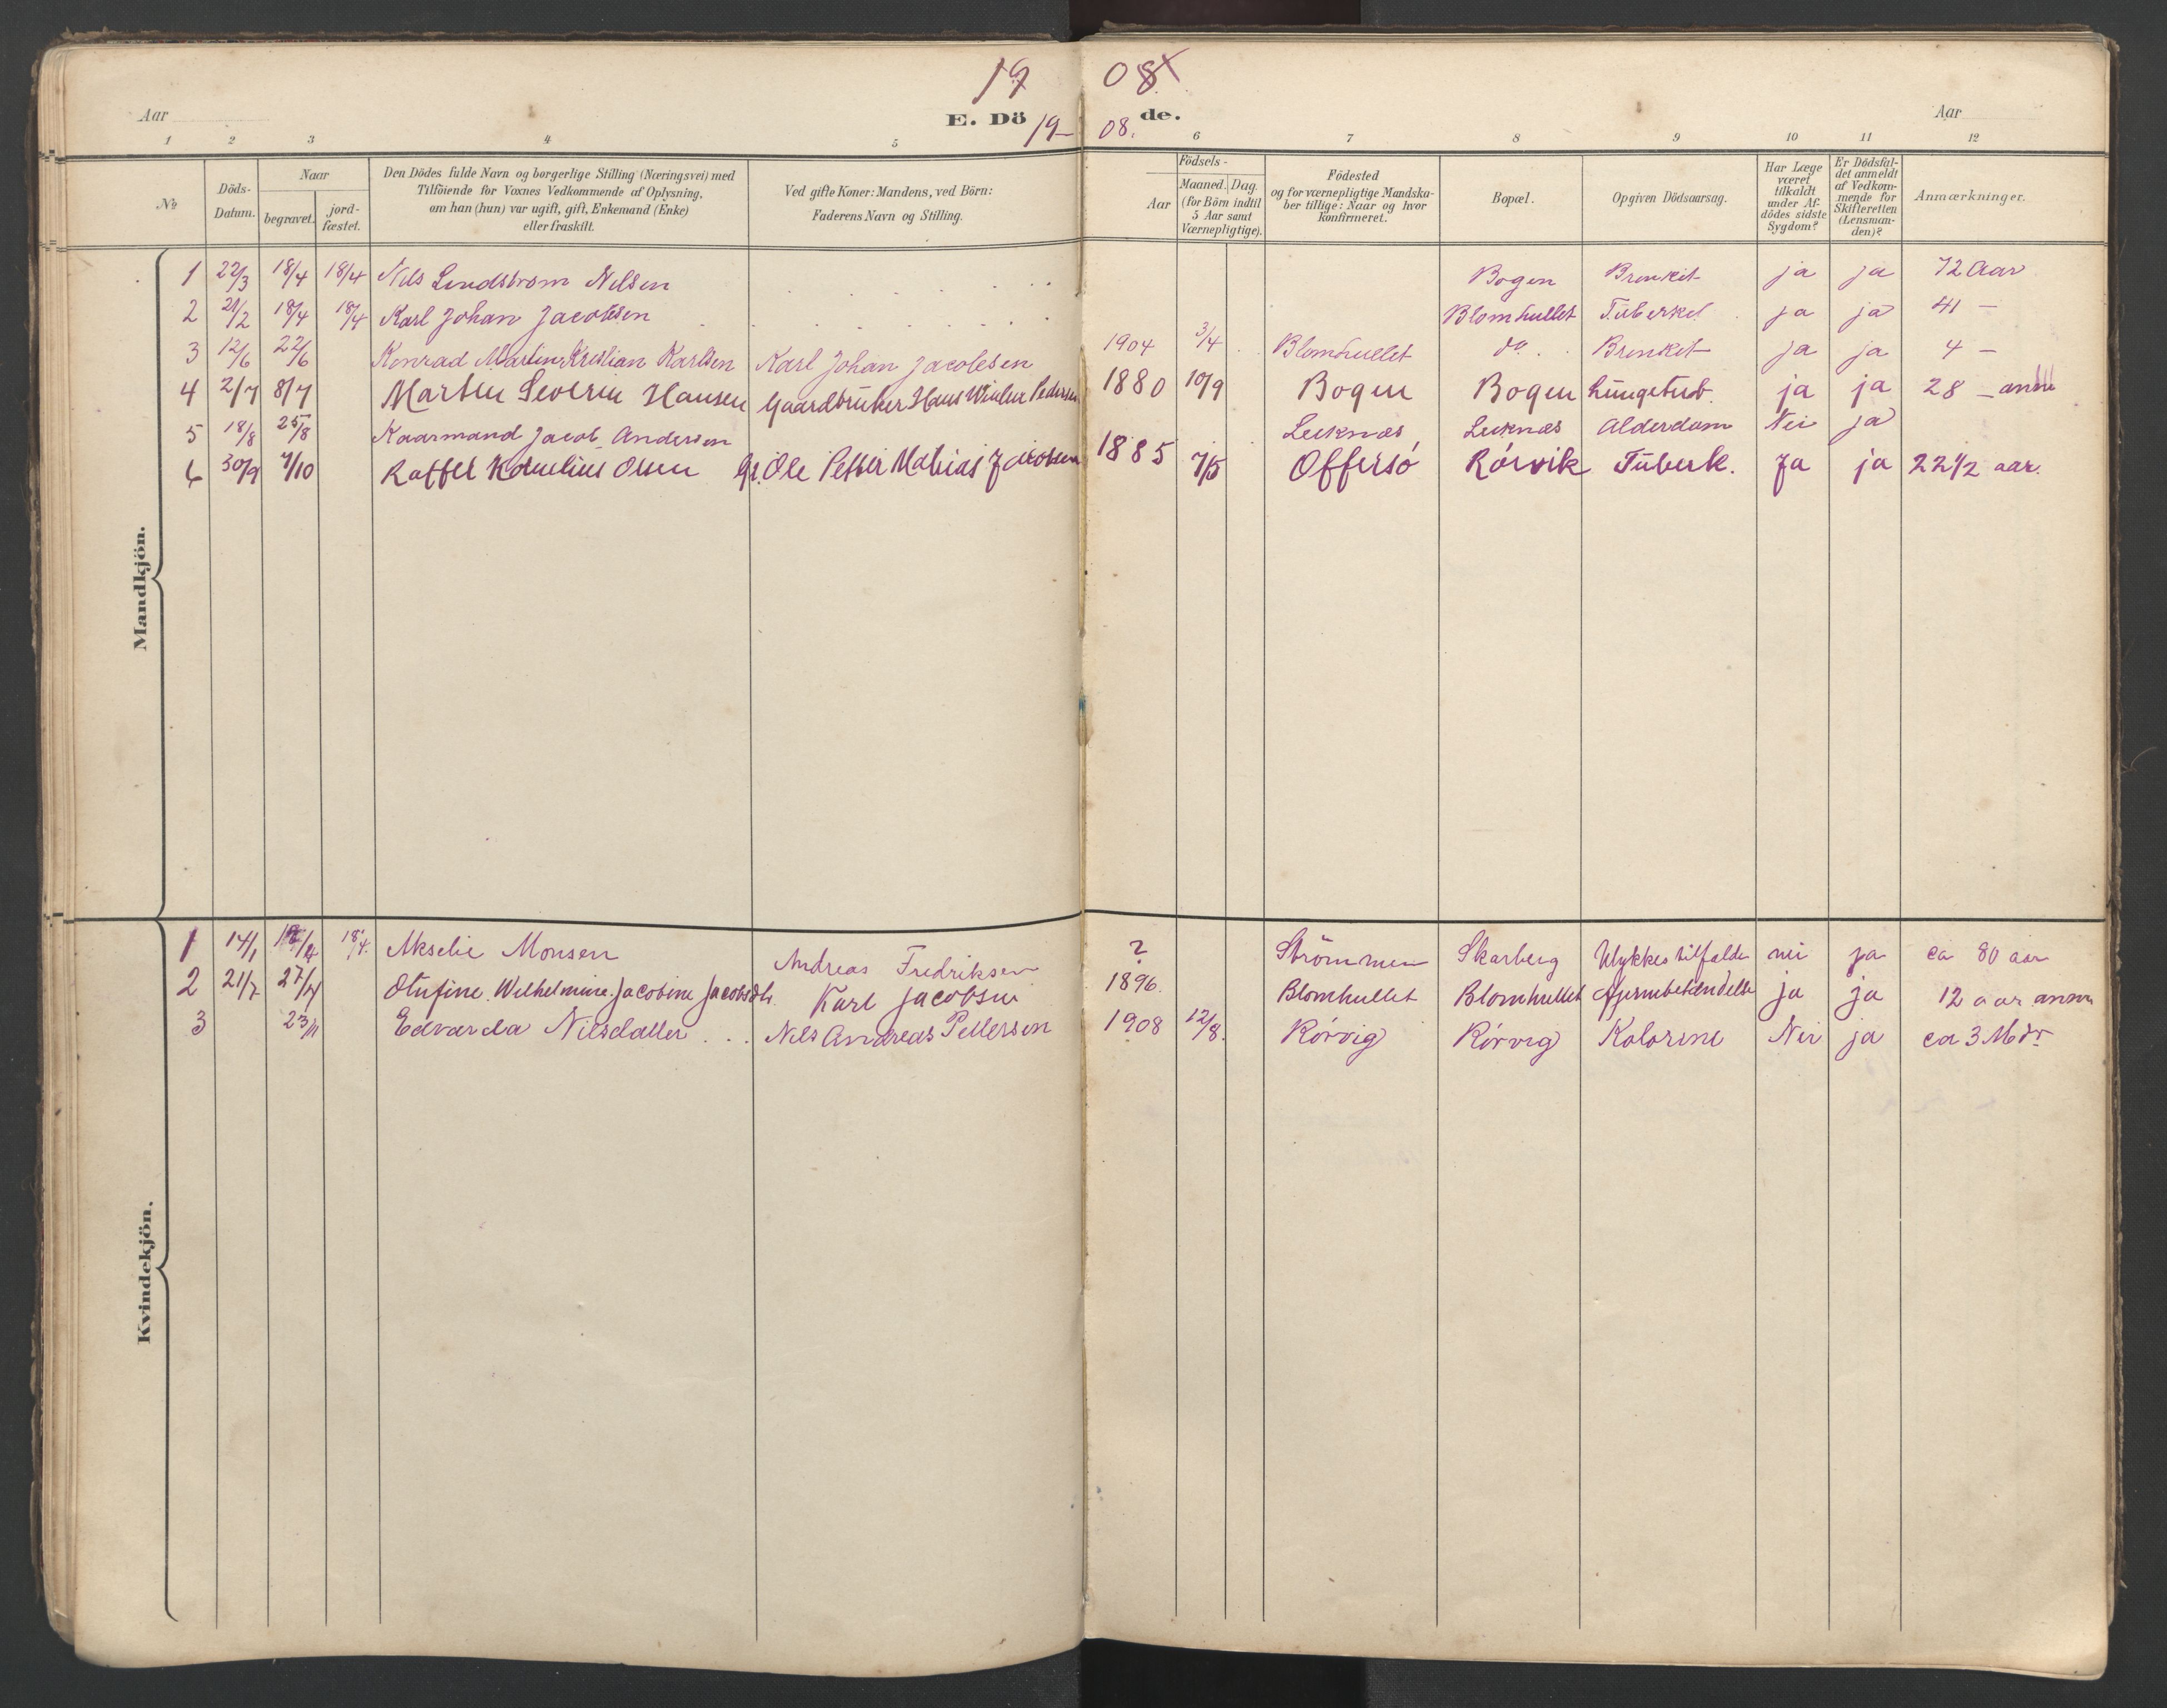 19 08
Aar
E. Döde.
19 08.
Aar
1 2 3 4 5 6 7 8 9 10 11 12
No
Döds-Datum.
Naar
begravet.
jord-fæstet.
Den Dödes fulde Navn og borgerlige Stilling (Næringsvei) med
Tilföiende for Voxnes Vedkommende af Oplysning,
om han (hun) var ugift, gift, Enkemand (Enke)
eller fraskilt.
Ved gifte Koner: Mandens, ved Börn:
Faderens Navn og Stilling.
Födsels-
Aar
Maaned. Dag.
(for Börn indtil
5 Aar samt
Værnepligtige).
Födested
og for værnepligtige Mandska-
ber tillige: Naar og hvor
Konfirmeret.
Bopæl.
Opgiven Dödsaarsag.
Har Læge
været
tilkaldt
under Af-
dödes sidste
Sygdom?
Er Dödsfal-
det anmeldt
af Vedkom-
mende for
Skifteretten
(Lensman-
den)?
Anmærkninger.
Mandkjön.
1 22/3 18/4 18/4 Nils Lindstrøm Nilsen Bogen Bronkit ja ja 72 Aar
2 21/2 18/4 18/4 Karl Johan Jacobsen Blomhullet Tuberkel ja ja 41 —
3 12/6 22/6 Konrad Martin Kristian Karlsen Karl Johan Jacobsen 1904 3/4 Blomhullet do. Bronkit ja ja 4 —
4 2/7 8/7 Martin Severin Hansen Gaardbruker Hans Winter Pedersen 1880 10/9 Bogen Bogen lungetub. ja ja 28 —
5 18/8 25/8 Kaarmand Jacob Andersen Leiknæs Leiknæs Alderdom Nei ja
6 30/9 7/10 Raffel Kornelius Olsen Gr. Ole Petter Mathias Jacobsen 1885 7/5 Offersö Rörvik Tuberk. Ja ja 22 1/2 aar.
Kvindekjön.
1 14/1 18/4 18/4. Akselie Monsen Andreas Fredriksen ? Strömmen Skarberg Ulykkestilfælde nei ja ca 80 aar
2 21/7 27/7 Olufine Wilhelmine Jacobine Jacobsdtr. Karl Jacobsen 1896. Blomhullet Blomhullet Hjernebetændelse ja ja 12 aar
3 23/11 Edvarda Nilsdatter Nils Andreas Pettersen 1908 12/8. Rörvig Rörvig Kolorine Nei ja ca 3 Mdr